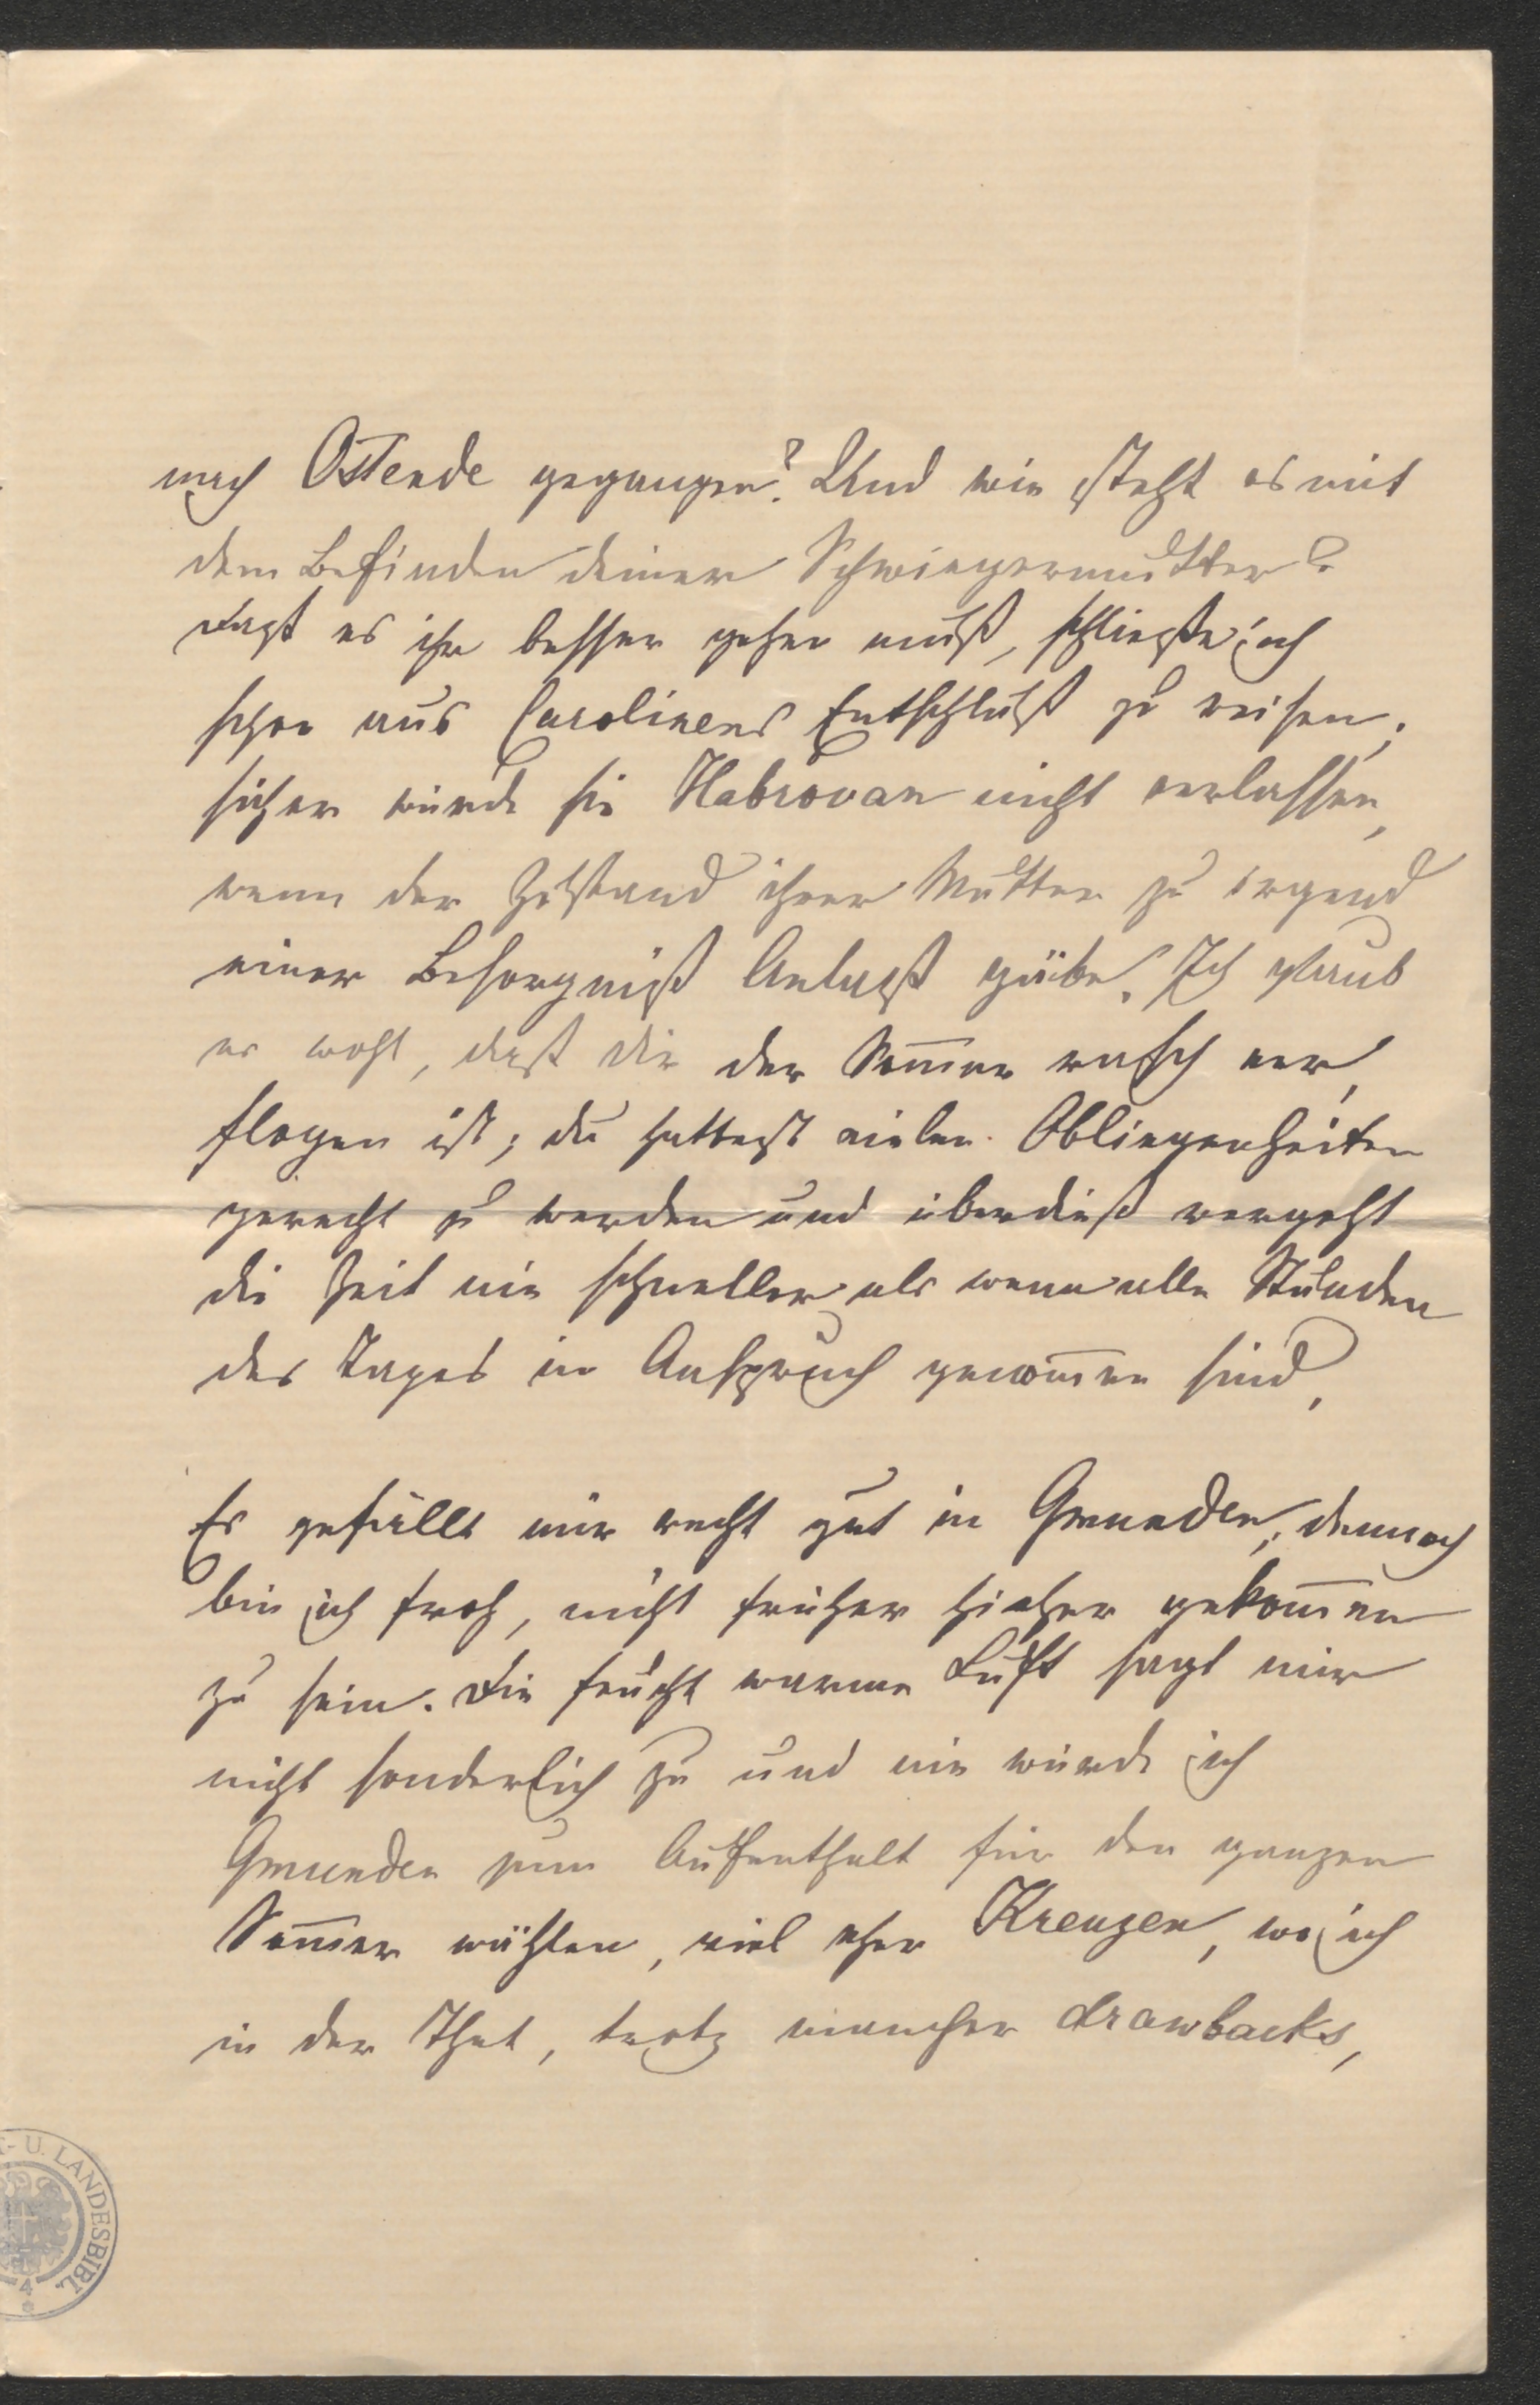 nach Ostende gegangen? Und wie steht es mit
dem Befinden deiner Schwiegermutter?
Daß es ihr besser gehen muß, schließe ich
schon aus Carolinens Entschluß zu reisen;
sicher würde sie Habrovan nicht verlassen,
wenn der Zustand ihrer Mutter zu irgend
einer Besorgniß Anlaß gäbe. Ich glaub
es wohl, daß dir der Som̅er rasch ver¬
flogen ist; du hattest vielen Obliegenheiten
gerecht zu werden und überdieß vergeht
die Zeit nie schneller als wenn alle Stunden
des Tages in Anspruch genom̅en sind.
Es gefällt mir recht gut in Gmunden, dennoch
bin ich froh, nicht früher hieher gekom̅en
zu sein. Die feucht warme Luft sagt mir
nicht sonderlich zu und nie würde ich
Gmunden zum Aufenthalt für den ganzen
Som̅er wählen, viel eher Kreuzen, wo ich
in der That, trotz mancher drawbacks,
U. LANDESBIBL.